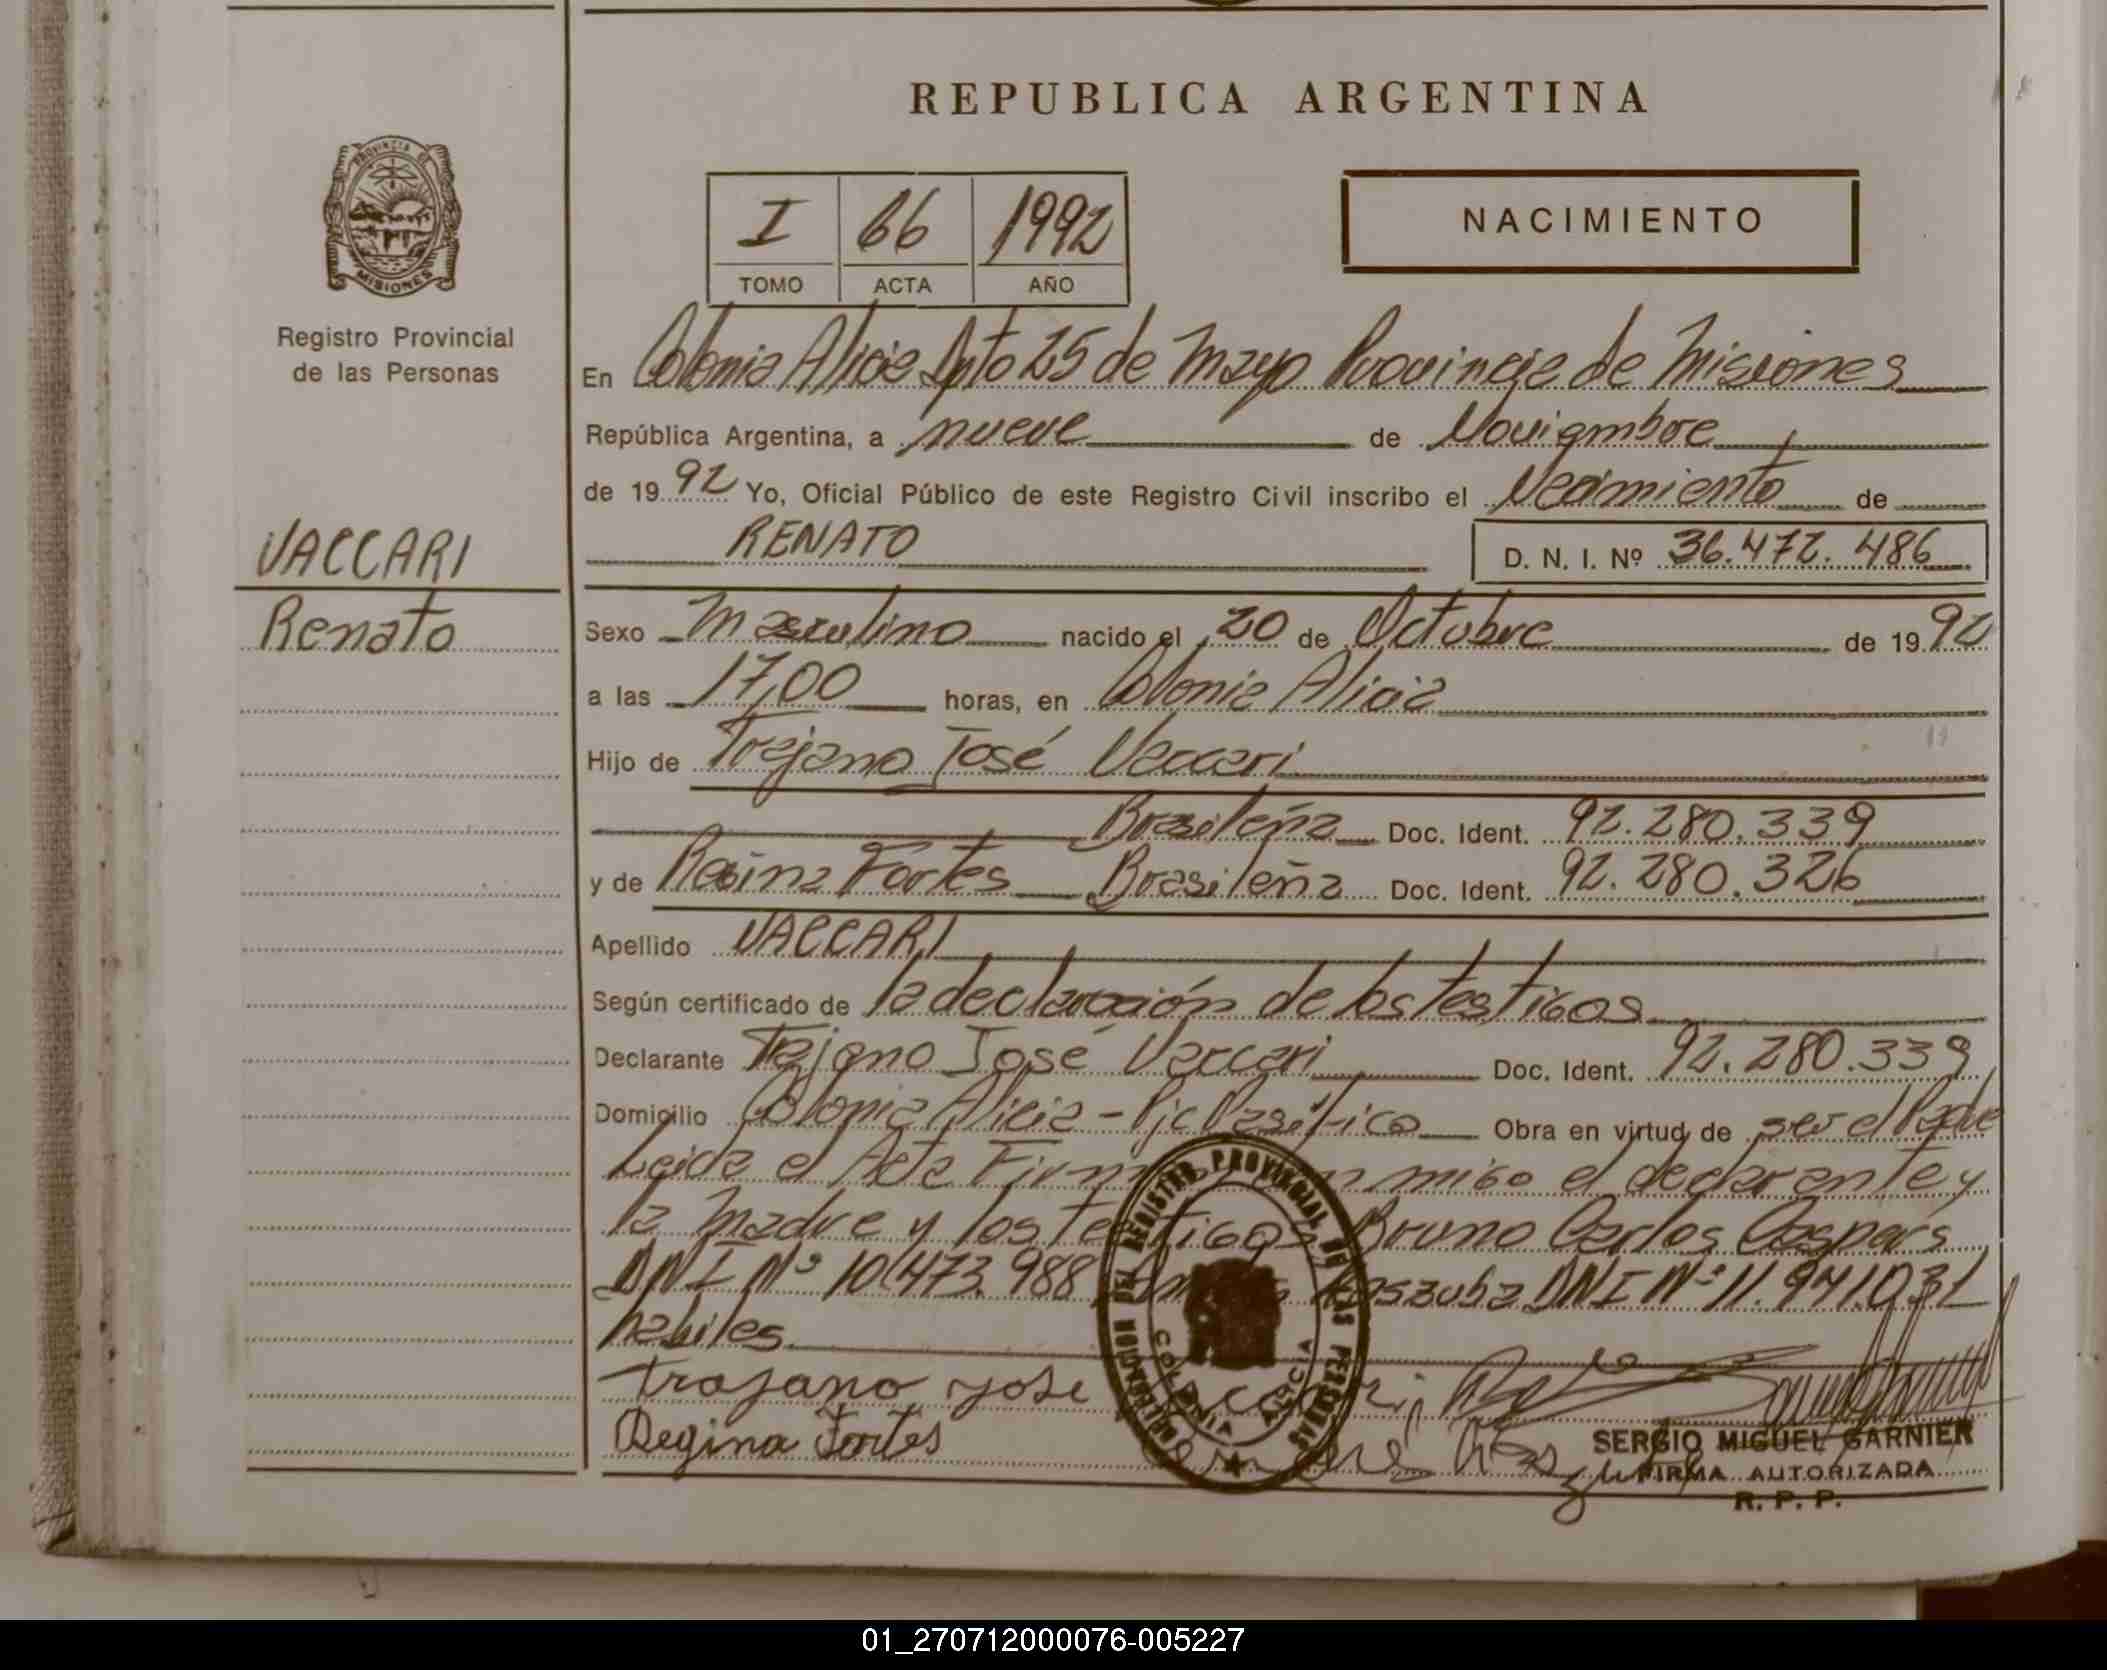 REPUBLICA ARGENTINA
PROVINCIA DE
MISIONES
Registro Provincial
de las Personas
I 66 1992
TOMO ACTA AÑO
NACIMIENTO
En Colonia Alicia Dpto 25 de Mayo Provincia de Misiones
República Argentina, a nueve de Noviembre
de 1992 Yo, Oficial Público de este Registro Civil inscribo el Nacimiento de
RENATO D. N. I. Nº 36.472.486
VACCARI
Renato
Sexo Masculino nacido el 20 de Octubre de 1992
a las 17,00 horas, en Colonia Alicia
Hijo de Trajano José Vaccari
Brasileña Doc. Ident. 92.280.339
y de Regina Fortes Brasileña Doc. Ident. 92.280.326
Apellido VACCARI
Según certificado de la declaración de los testigos
Declarante Trajano José Vaccari Doc. Ident. 92.280.339
Domicilio Colonia Alicia - Pje Pasifico Obra en virtud de ser el Padre
Leida el Acta Firman conmigo el declarante y
la Madre y los testigos Bruno Carlos Caspars
DNI Nº 10.473.988 Kaszuba DNI Nº 11.941.031
habiles.
trajano jose vaccari
Regina Fortes
DIRECCION DEL REGISTRO PROVINCIAL DE LAS PERSONAS
COLONIA ALICIA
SERGIO MIGUEL GARNIER
FIRMA AUTORIZADA
R. P. P.
01_270712000076-005227